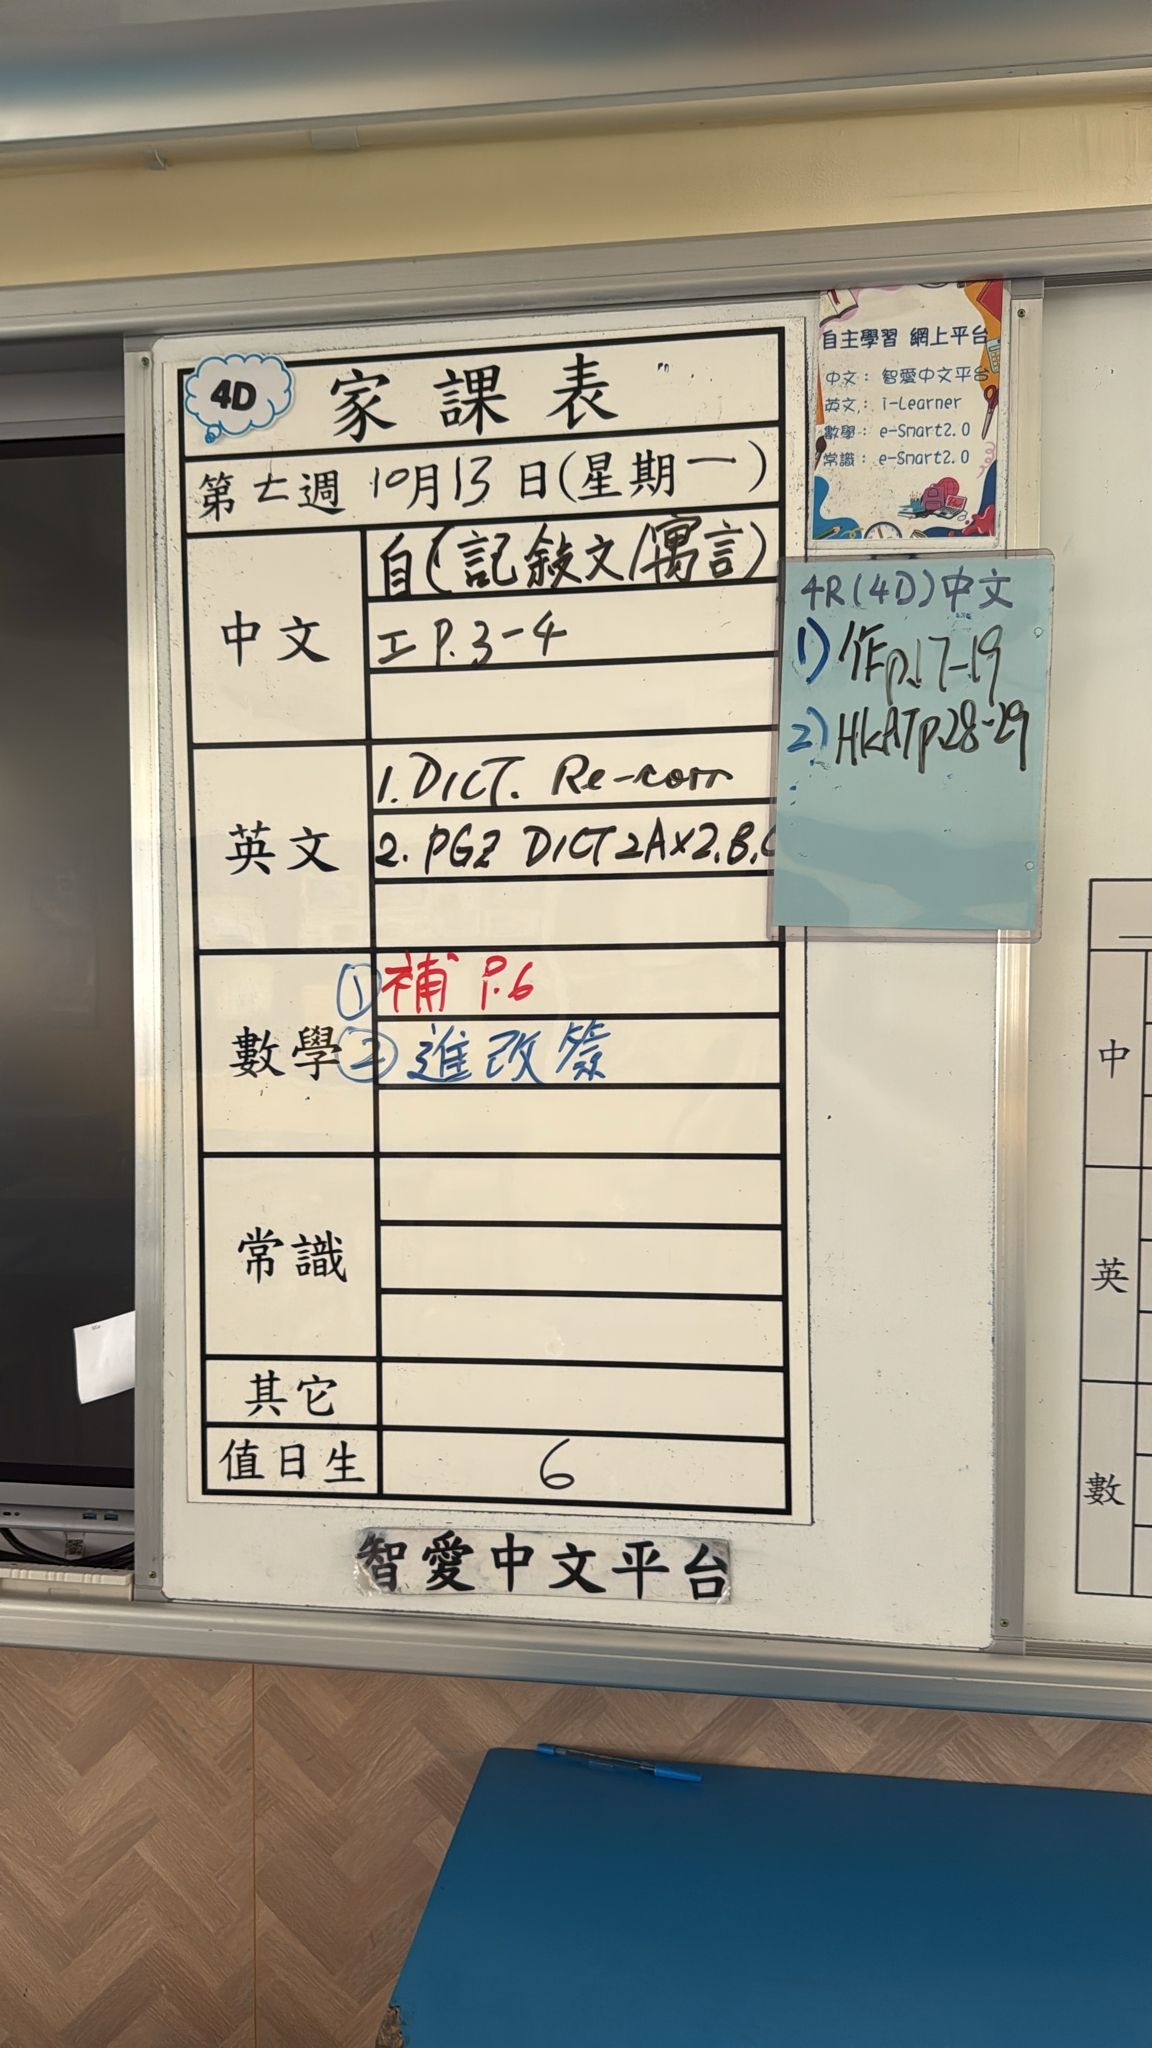 4D 家課表
第七週 10月13日(星期一)
中文
自(記敍文/寓言)
工 P.3-4
英文
1. DICT. Re-corr
2. PGZ DICT 2A×2.B.C
數學
① 補 P.6
② 進改簽
常識
其它
值日生 6
智愛中文平台
自主學習 網上平台
中文： 智愛中文平台
英文： i-Learner
數學： e-Smart2.0
常識： e-Smart2.0
4R(4D)中文
1) 作p.17-19
2) HKAT p.28-29
中
英
數